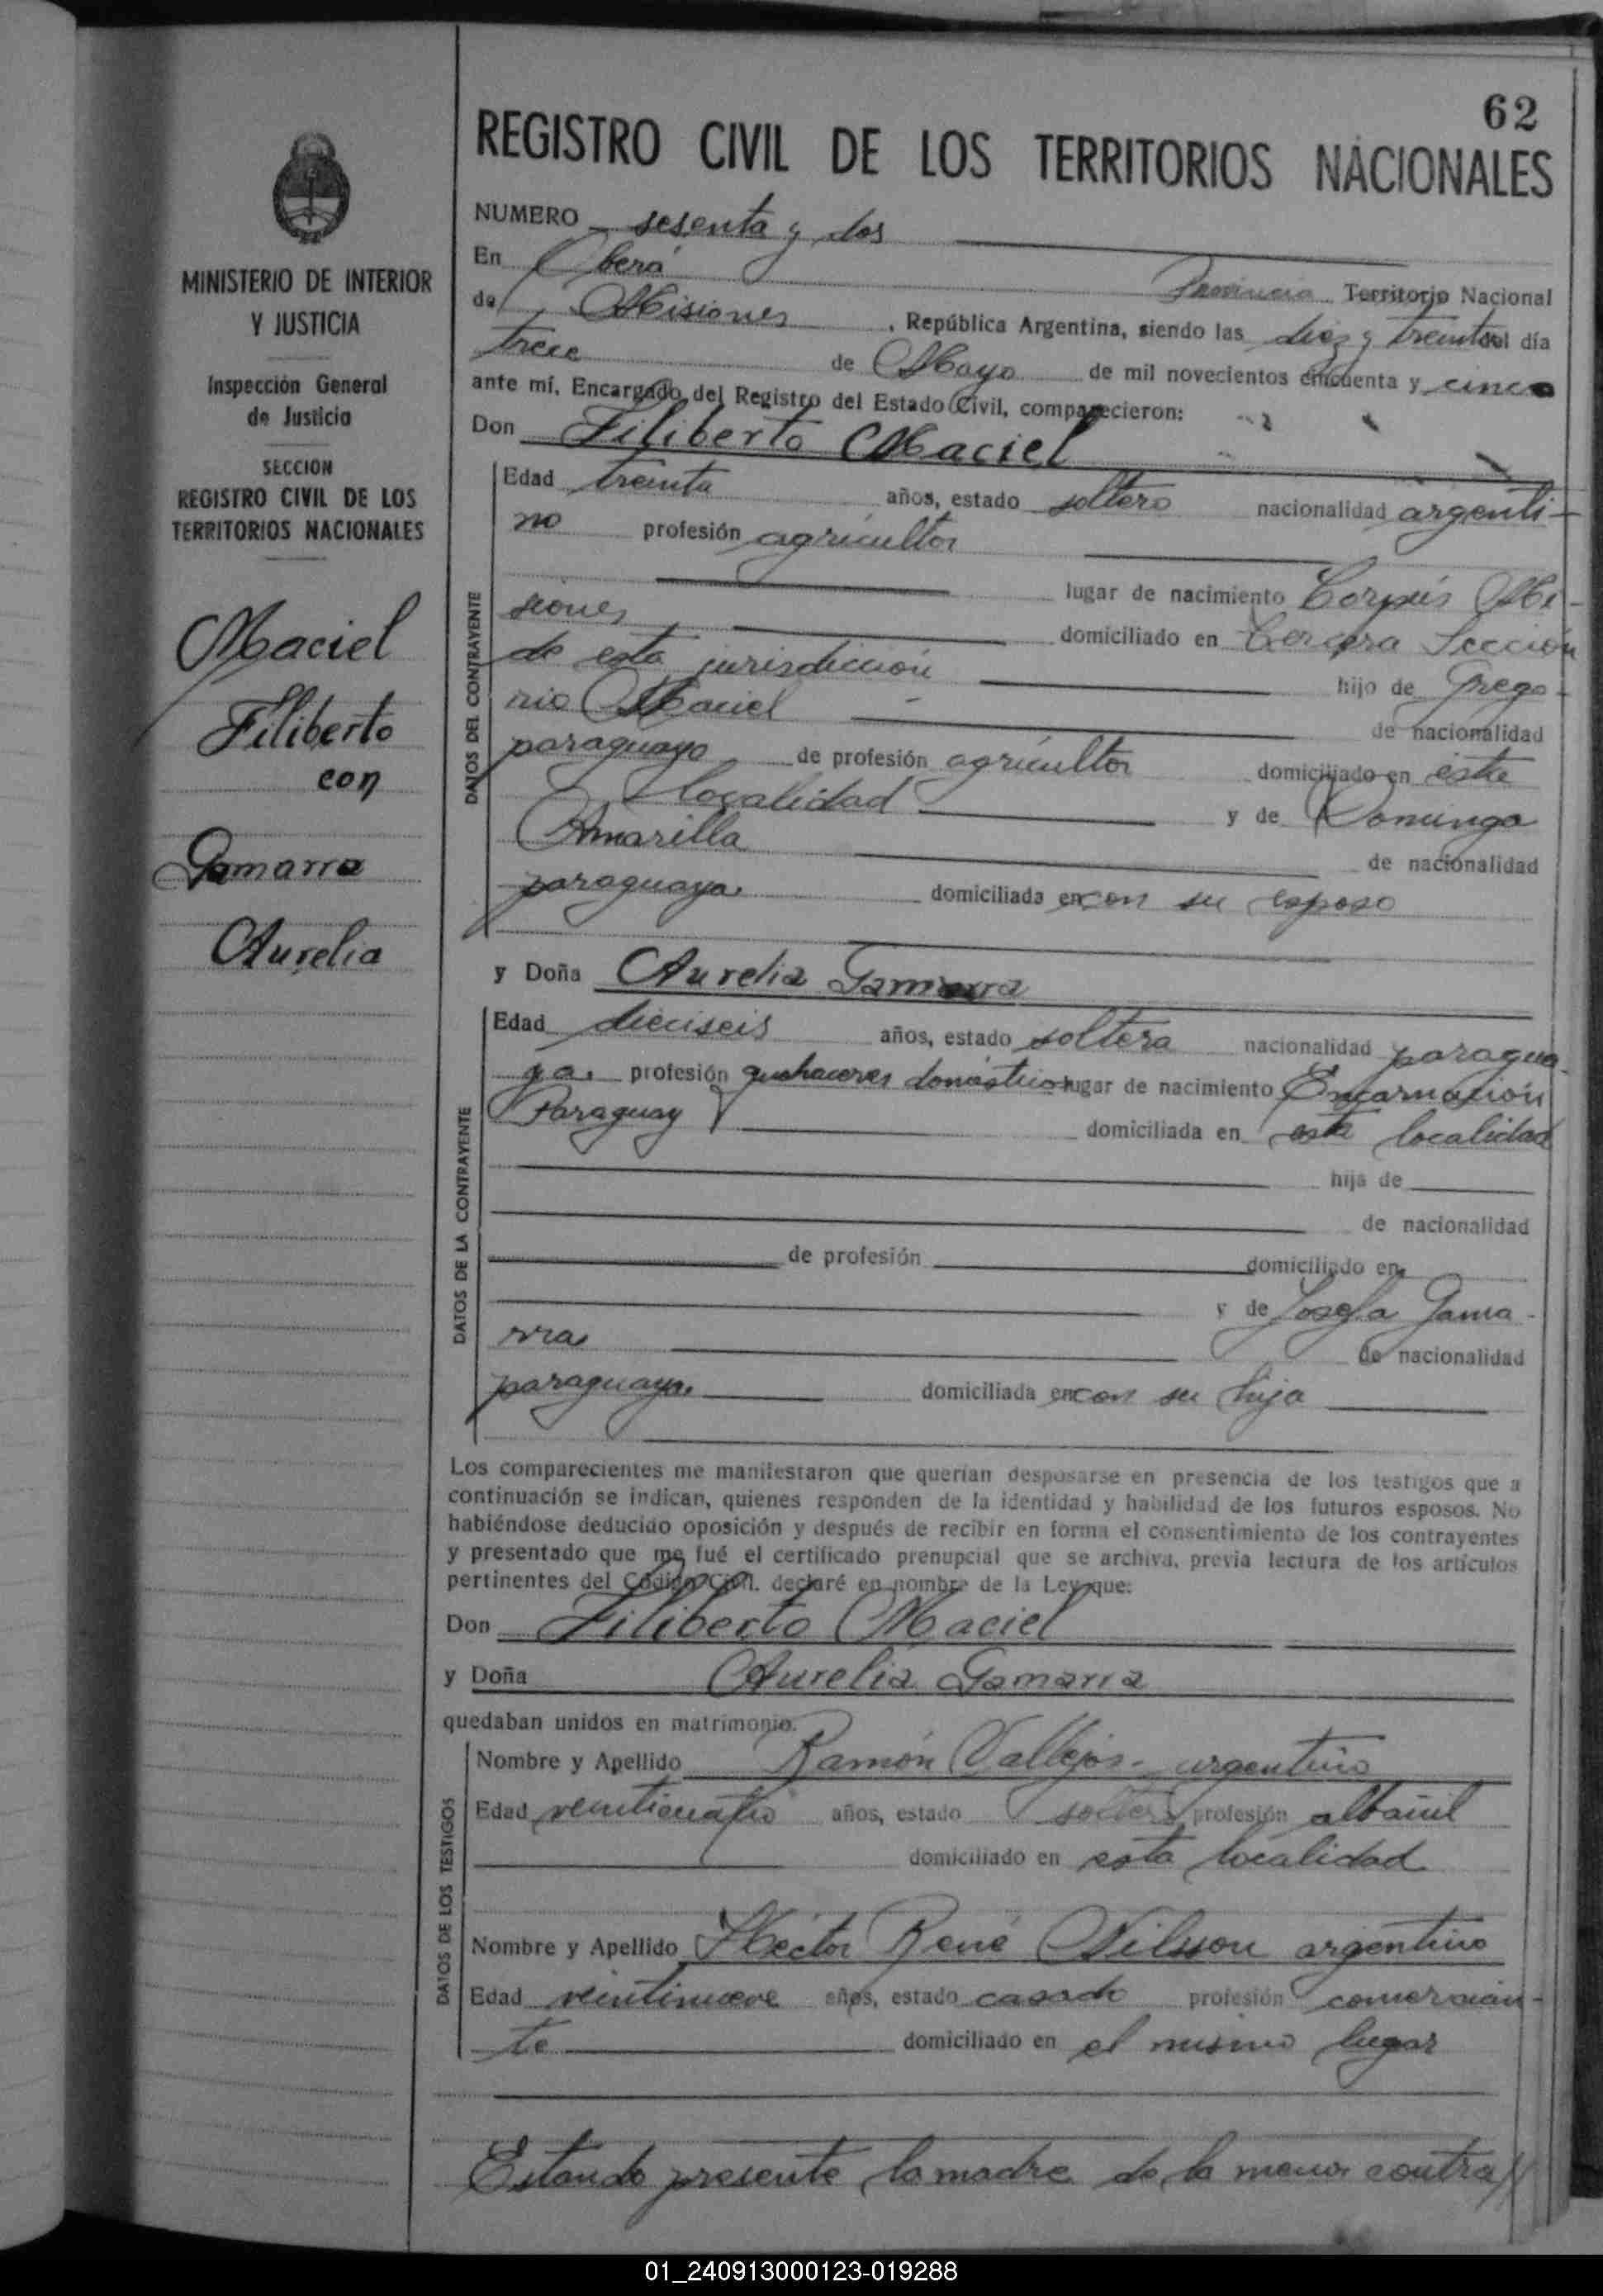 62
REGISTRO CIVIL DE LOS TERRITORIOS NACIONALES
MINISTERIO DE INTERIOR
Y JUSTICIA
Inspección General
de Justicia
SECCION
REGISTRO CIVIL DE LOS
TERRITORIOS NACIONALES
Maciel
Filiberto
con
Gamarra
Aurelia
NUMERO sesenta y dos
En Oberá
Provincia Territorio Nacional
de Misiones, República Argentina, siendo las diez y treinta del día
trece de Mayo de mil novecientos cincuenta y cinco
ante mí, Encargado del Registro del Estado Civil, comparecieron:
Don Filiberto Maciel
DATOS DEL CONTRAYENTE
Edad treinta años, estado soltero nacionalidad argenti-
no profesión agricultor
lugar de nacimiento Corpus Mi-
siones domiciliado en tercera Sección
de esta jurisdicción hijo de Grego-
rio Maciel de nacionalidad
paraguayo de profesión agricultor domiciliado en esta
localidad y de Dominga
Amarilla de nacionalidad
paraguaya domiciliada en con su esposo
y Doña Aurelia Gamarra
DATOS DE LA CONTRAYENTE
Edad dieciseis años, estado soltera nacionalidad paragua-
ya. profesión quehaceres domésticos lugar de nacimiento Encarnación
Paraguay domiciliada en esta localidad
hija de
de nacionalidad
de profesión domiciliado en
y de Josefa Gama-
rra de nacionalidad
paraguaya. domiciliada en con su hija
Los comparecientes me manifestaron que querían desposarse en presencia de los testigos que a
continuación se indican, quienes responden de la identidad y habilidad de los futuros esposos. No
habiéndose deducido oposición y después de recibir en forma el consentimiento de los contrayentes
y presentado que me fué el certificado prenupcial que se archiva, previa lectura de los artículos
pertinentes del Código Civil. declaré en nombre de la Ley que:
Don Filiberto Maciel
y Doña Aurelia Gamarra
quedaban unidos en matrimonio.
DATOS DE LOS TESTIGOS
Nombre y Apellido Ramón Vallejos - argentino
Edad veinticuatro años, estado soltero profesión albañil
domiciliado en esta localidad
Nombre y Apellido Héctor René Nilsson argentino
Edad veintinueve años, estado casado profesión comercian-
te domiciliado en el mismo lugar
Estando presente la madre de la menor contra//
01_240913000123-019288